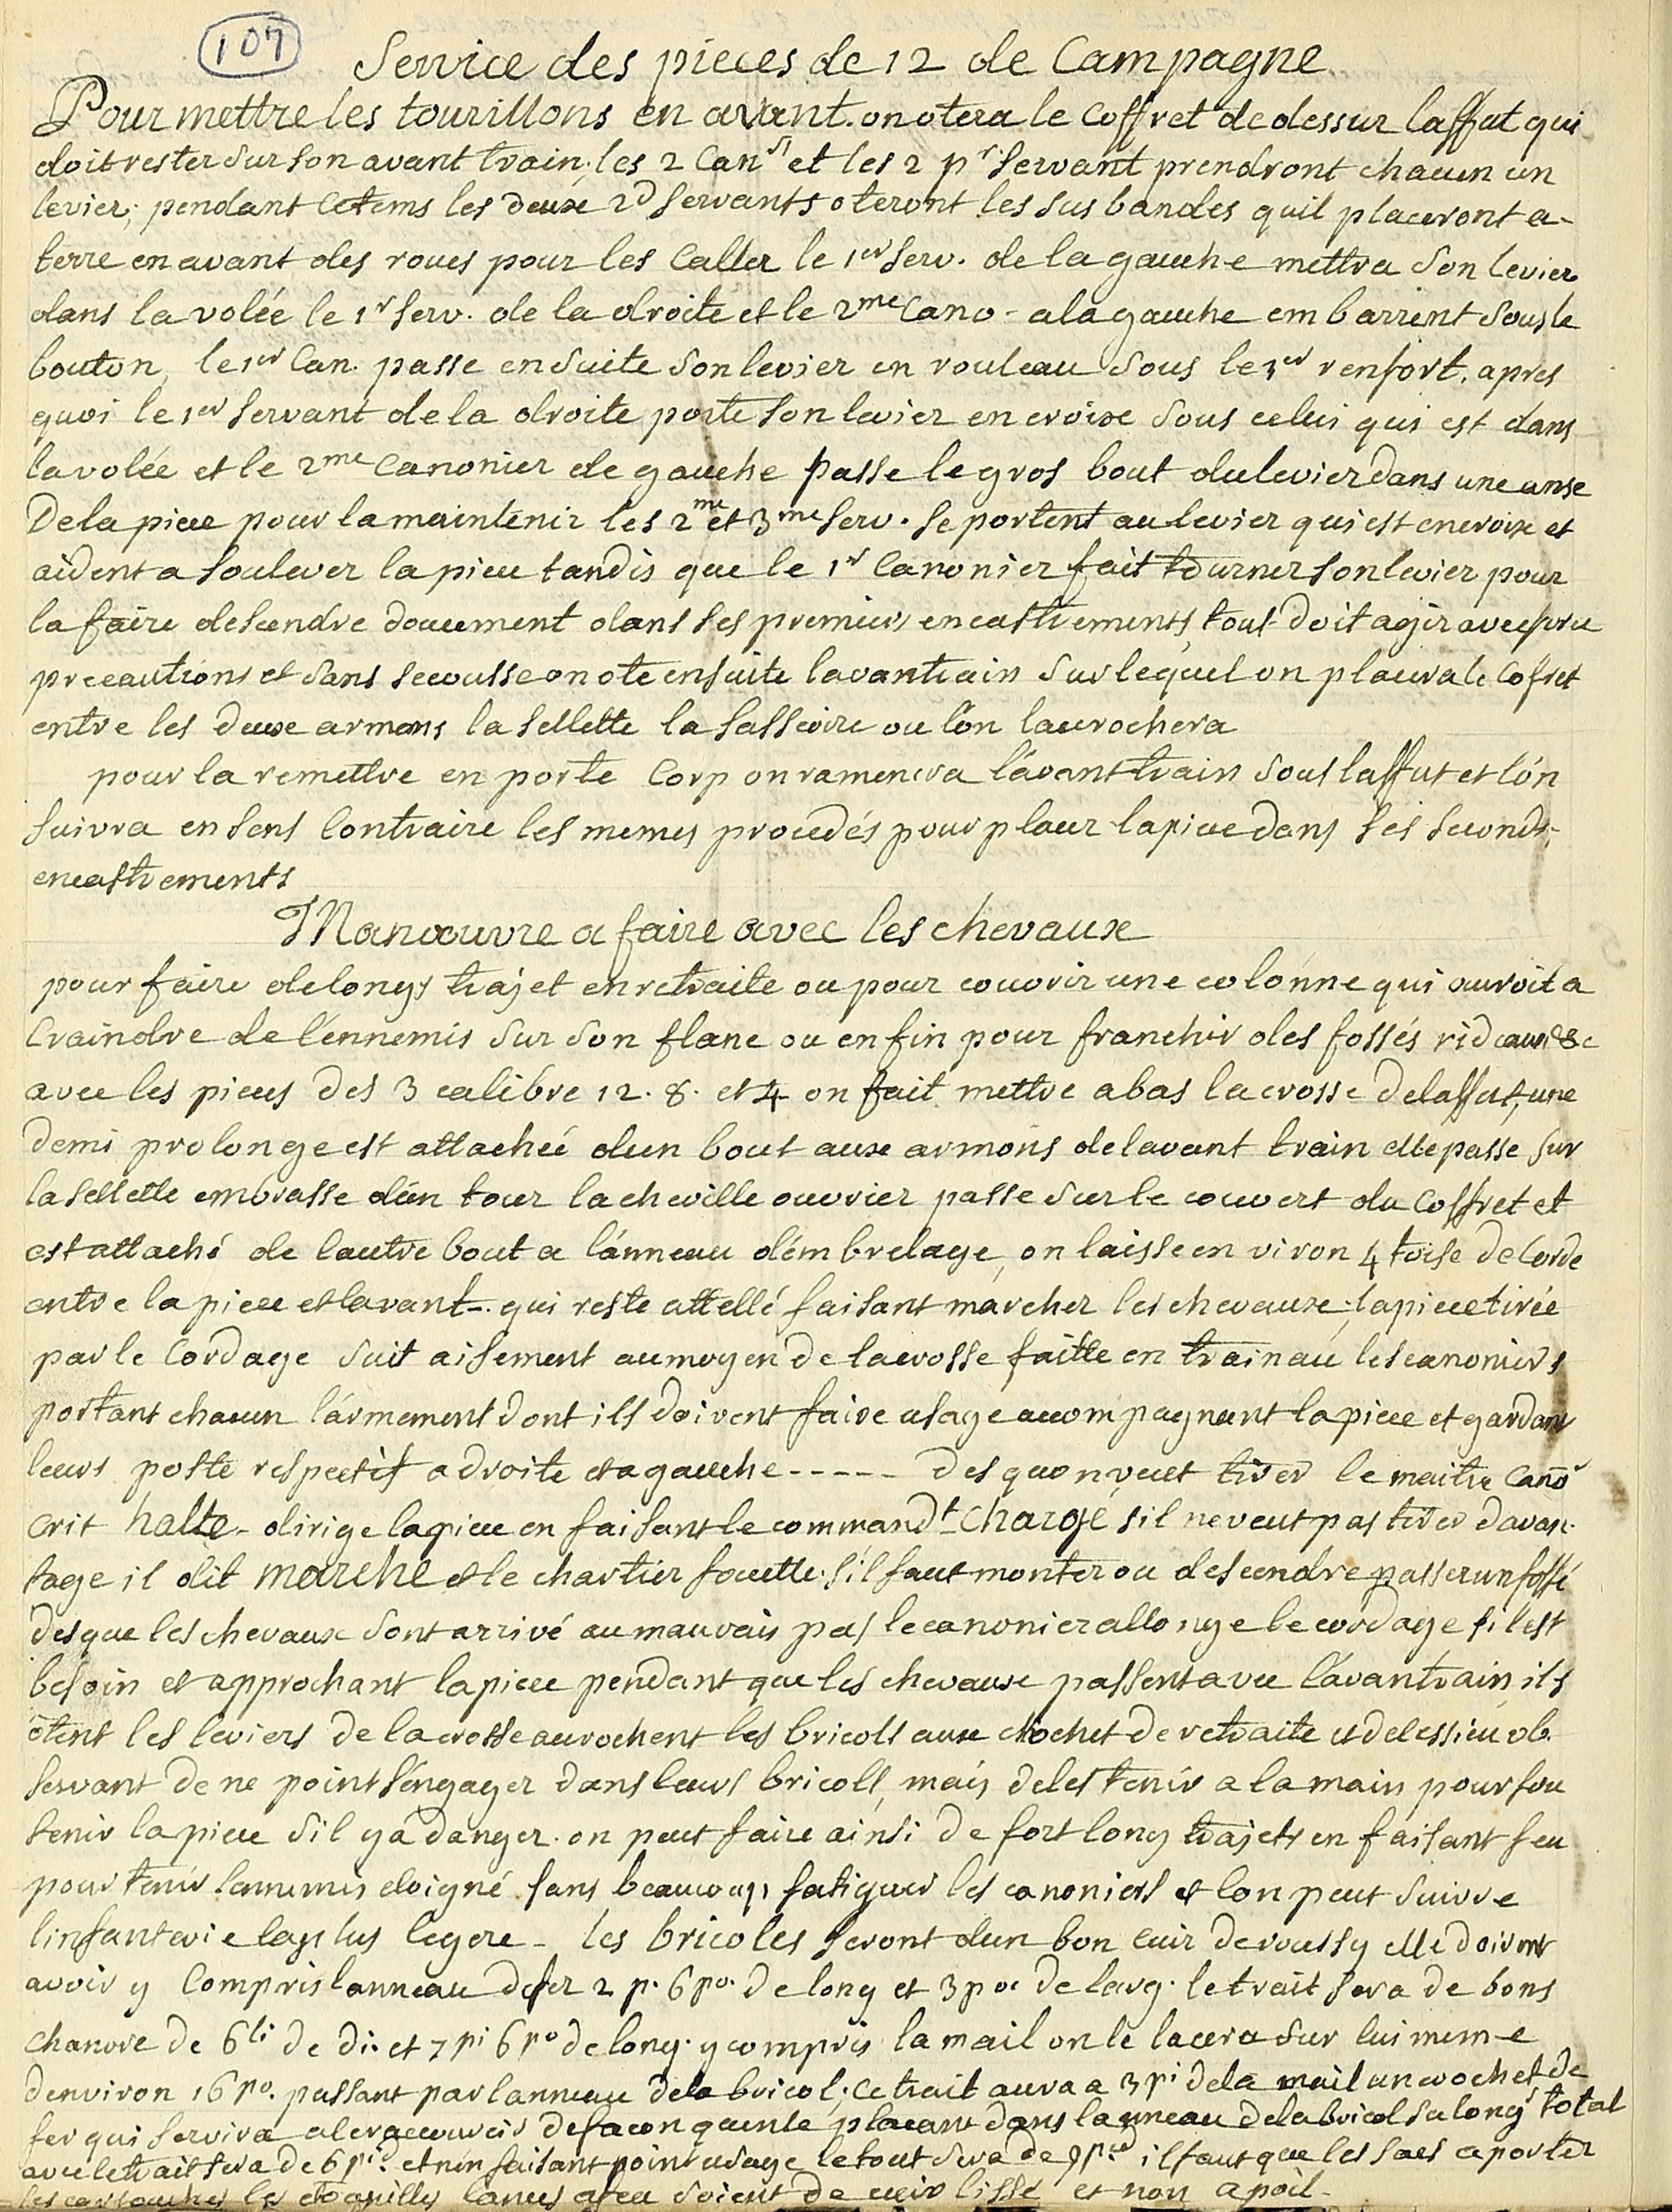 107
Service des pieces de 12 de Campagne
Pour mettre les tourillons en avant. on otera le Coffret de dessur laffut qui
doit rester sur son avant train. les 2 Can.rs et les 2 pr. servant prendront chacun un
levier; pendant cetems les deuxe 2d servants oteront les sus bandes quil placeront a-
terre en avant des roues pour les Caller le 1er serv. de la gauche mettra son levier
dans la volée le 1r serv. de la droite et le 2me Cano - a la gauche embarrent sous le
bouton, le 1er Can. passe en suite son levier en rouleau sous le 1er renfort. apres
quoi le 1er servant de la droite porte son levier en croixe sous celui qui est dans
la volée et le 2me Canonier de gauche passe le gros bout du levier dans une anse
De la piece pour la maintenir les 2me et 3me serv. se portent au levier qui est en croixe et
aident a soulever la piece tandis que le 1r Canonier fait tourner son levier pour
la faire descendre doucement dans ses premiers encastrements tout doit agir avec
precautions et sans secousse on ote ensuite lavantrain sur lequel on placera le Cofret
entre les deuxe armons la sellette la sassoire ou l'on lacrochera
pour la remettre en porte Corp on ramenera l'avant train sous laffut et l'on
suivra en sens Contraire les memes procedés pour placer la piece dans ses seconds-
encastrements
Manœuvre a faire avec les chevauxe
pour faire de longs trajet en retraite ou pour couvrir une colonne qui auroit a
Craindre de l'ennemis sur son flanc ou enfin pour franchir des fossés rideaux &c
avec les pieces des 3 calibre 12. 8. et 4 on fait mettre a bas la crosse de laffut, une
demi prolonge est attachéé d'un bout auxe armons de lavant train elle passe sur
la sellette embrasse d'un tour la cheville ouvrier passe sur le couvert du Coffret et
est attaché de lautre bout a l'anneau d'embrelage, on laisse en viron 4 toise de Corde
entre la piece et lavant-. qui reste attellé faisant marcher les chevauxe; la piece tirée
par le Cordage suit aisement au moyen de la crosse faitte en trainau les canoniers
portant chacun l'armement dont ils doivent faire usage accompagnent la piece et gardant
leurs poste respectif a droite et a gauche - - - - - des quon veut tirer le maitre Canor
crit halte - dirige la piece en faisant le command.t Chargé s'il ne veut pas tirer davan-
tage il dit marche et le chartier fouette. s'il faut monter ou descendre passer un fossé
des que les chevauxe sont arrivé au mauvais pas le canonier allonge le cordage s'il est
besoin et approchant la piece pendant que les chevauxe passent avec l'avantrain ils
otent les leviers de la crosse acrochent les bricolls auxe crochet de retraite et de lessieu ob-
servant de ne point s'engager dans leurs bricolls, mais de les tenir a la main pour sou
tenir la piece s'il y a danger. on peut faire ainsi de fort long trajets en faisant feu
pour tenir lennemis eloigné sans beaucoup fatiguer les canoniers et lon peut suivre
linfanterie la plus legere - les bricoles seront d'un bon cuir de roussy elle doivent
avoir y Compris lanneau de fer 2 p. 6 po. de long et 3 po. de larg. le trait sera de bons
chanvre de 6 li de di. et 7 pi 6 po de long. y compris la mail on le lacera sur lui meme
denviron 16 po. passant par lanneau de la bricol; Ce trait aura a 3 pi de la mail un crochet de
fer qui servira a le racourcir de facon quen le placant dans lanneau de la bricol sa long.r total
avec le trait sera de 6 pi.d et n'en faisant point usage le tout sera de 9 pi.ed il faut que les sacs a porter
les cartouches les etoupilles lances a feu soient de cuir lissé et non a poil -